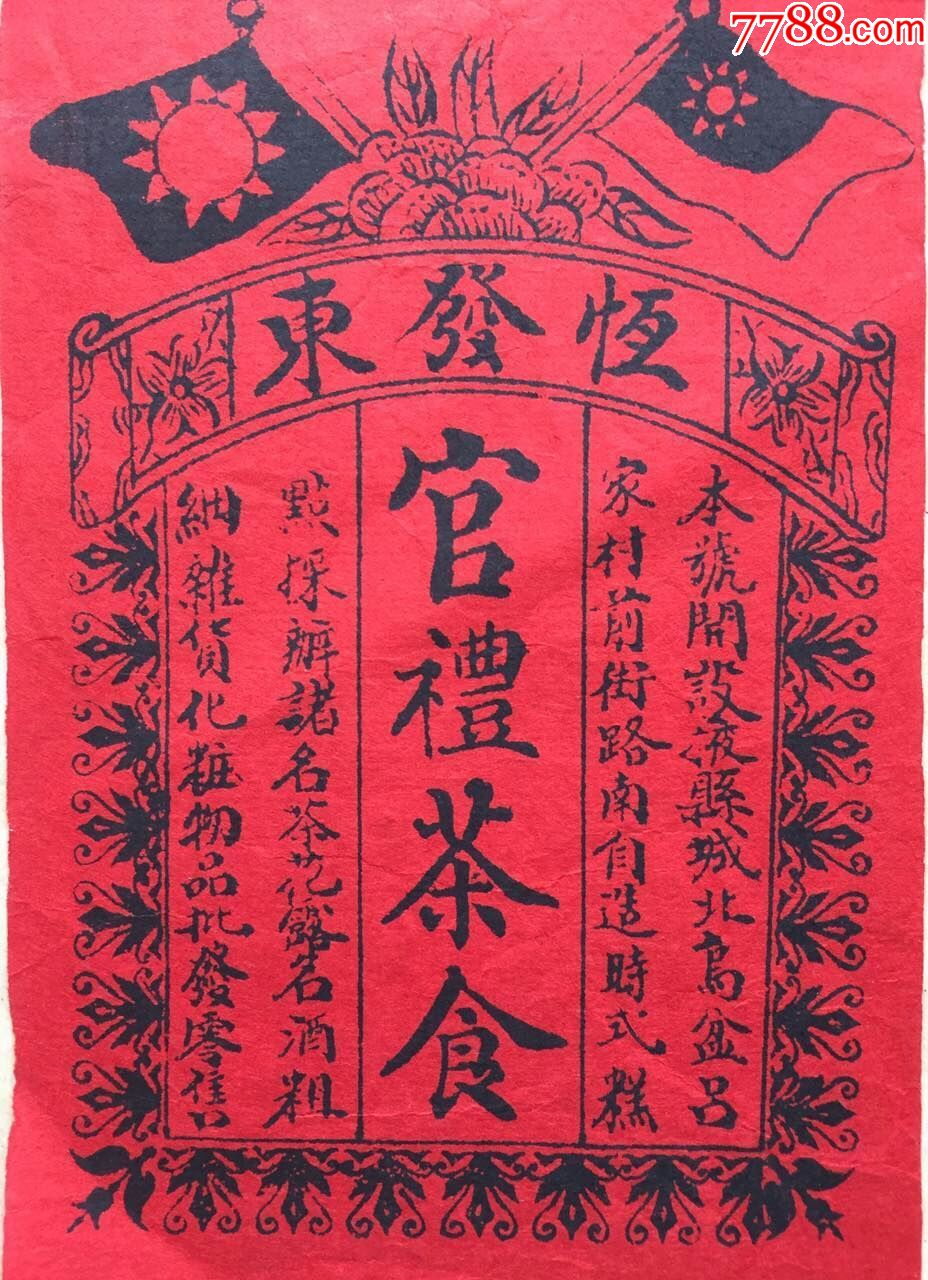 7788.com
恆發東
本號開設掖縣城北烏盆呂
家村前街路南自造時式糕
官禮茶食
點採辦諸名茶花露名酒粗
細雜貨化粧物品批發零售